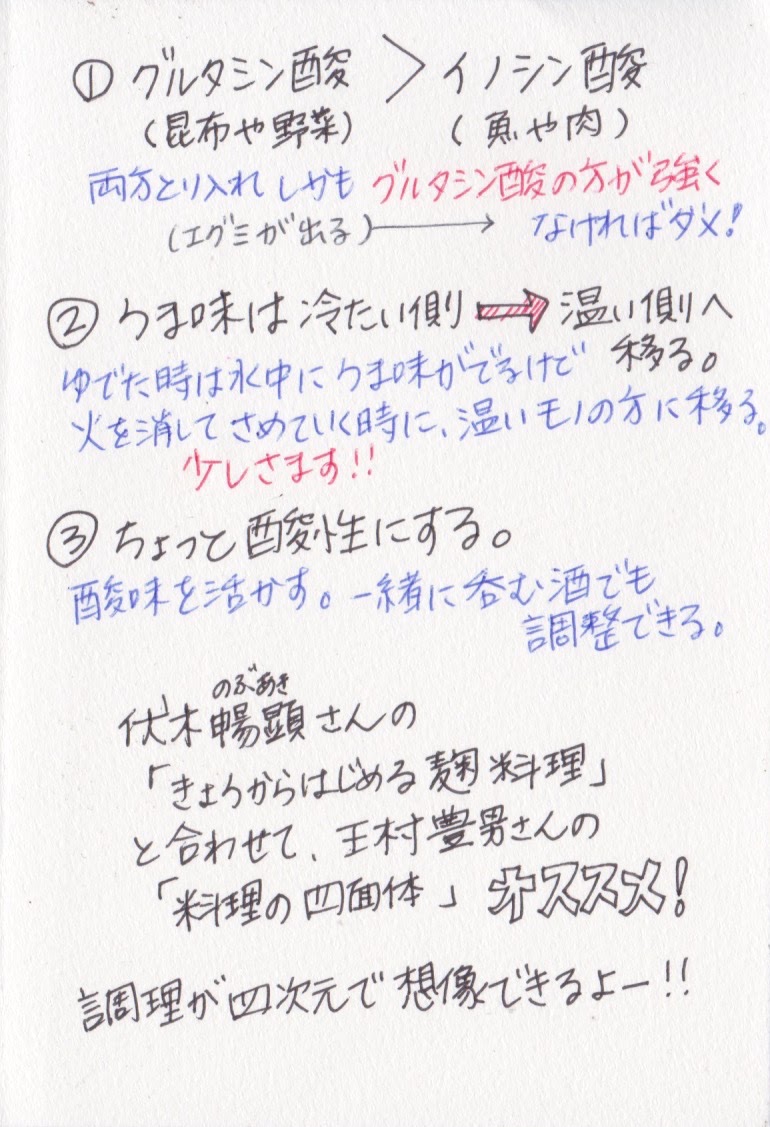 ① グルタミン酸 > イノシン酸
(昆布や野菜) (魚や肉)
両方とり入れ しかも グルタシン酸の方が強く
(エグミが出る) → なければダメ!
② うま味は冷たい側 ➡ 温い側へ
移る。
ゆでた時は水中にうま味がでるけど
火を消してさめていく時に、温いモノの方に移る。
少しさます!!
③ ちょっと酸性にする。
酸味を活かす。一緒に呑む酒でも
調整できる。
のぶあき
伏木暢顕さんの
「きょうからはじめる麹料理」
と合わせて、玉村豊男さんの
「料理の四面体」オススメ!
調理が四次元で想像できるよー!!